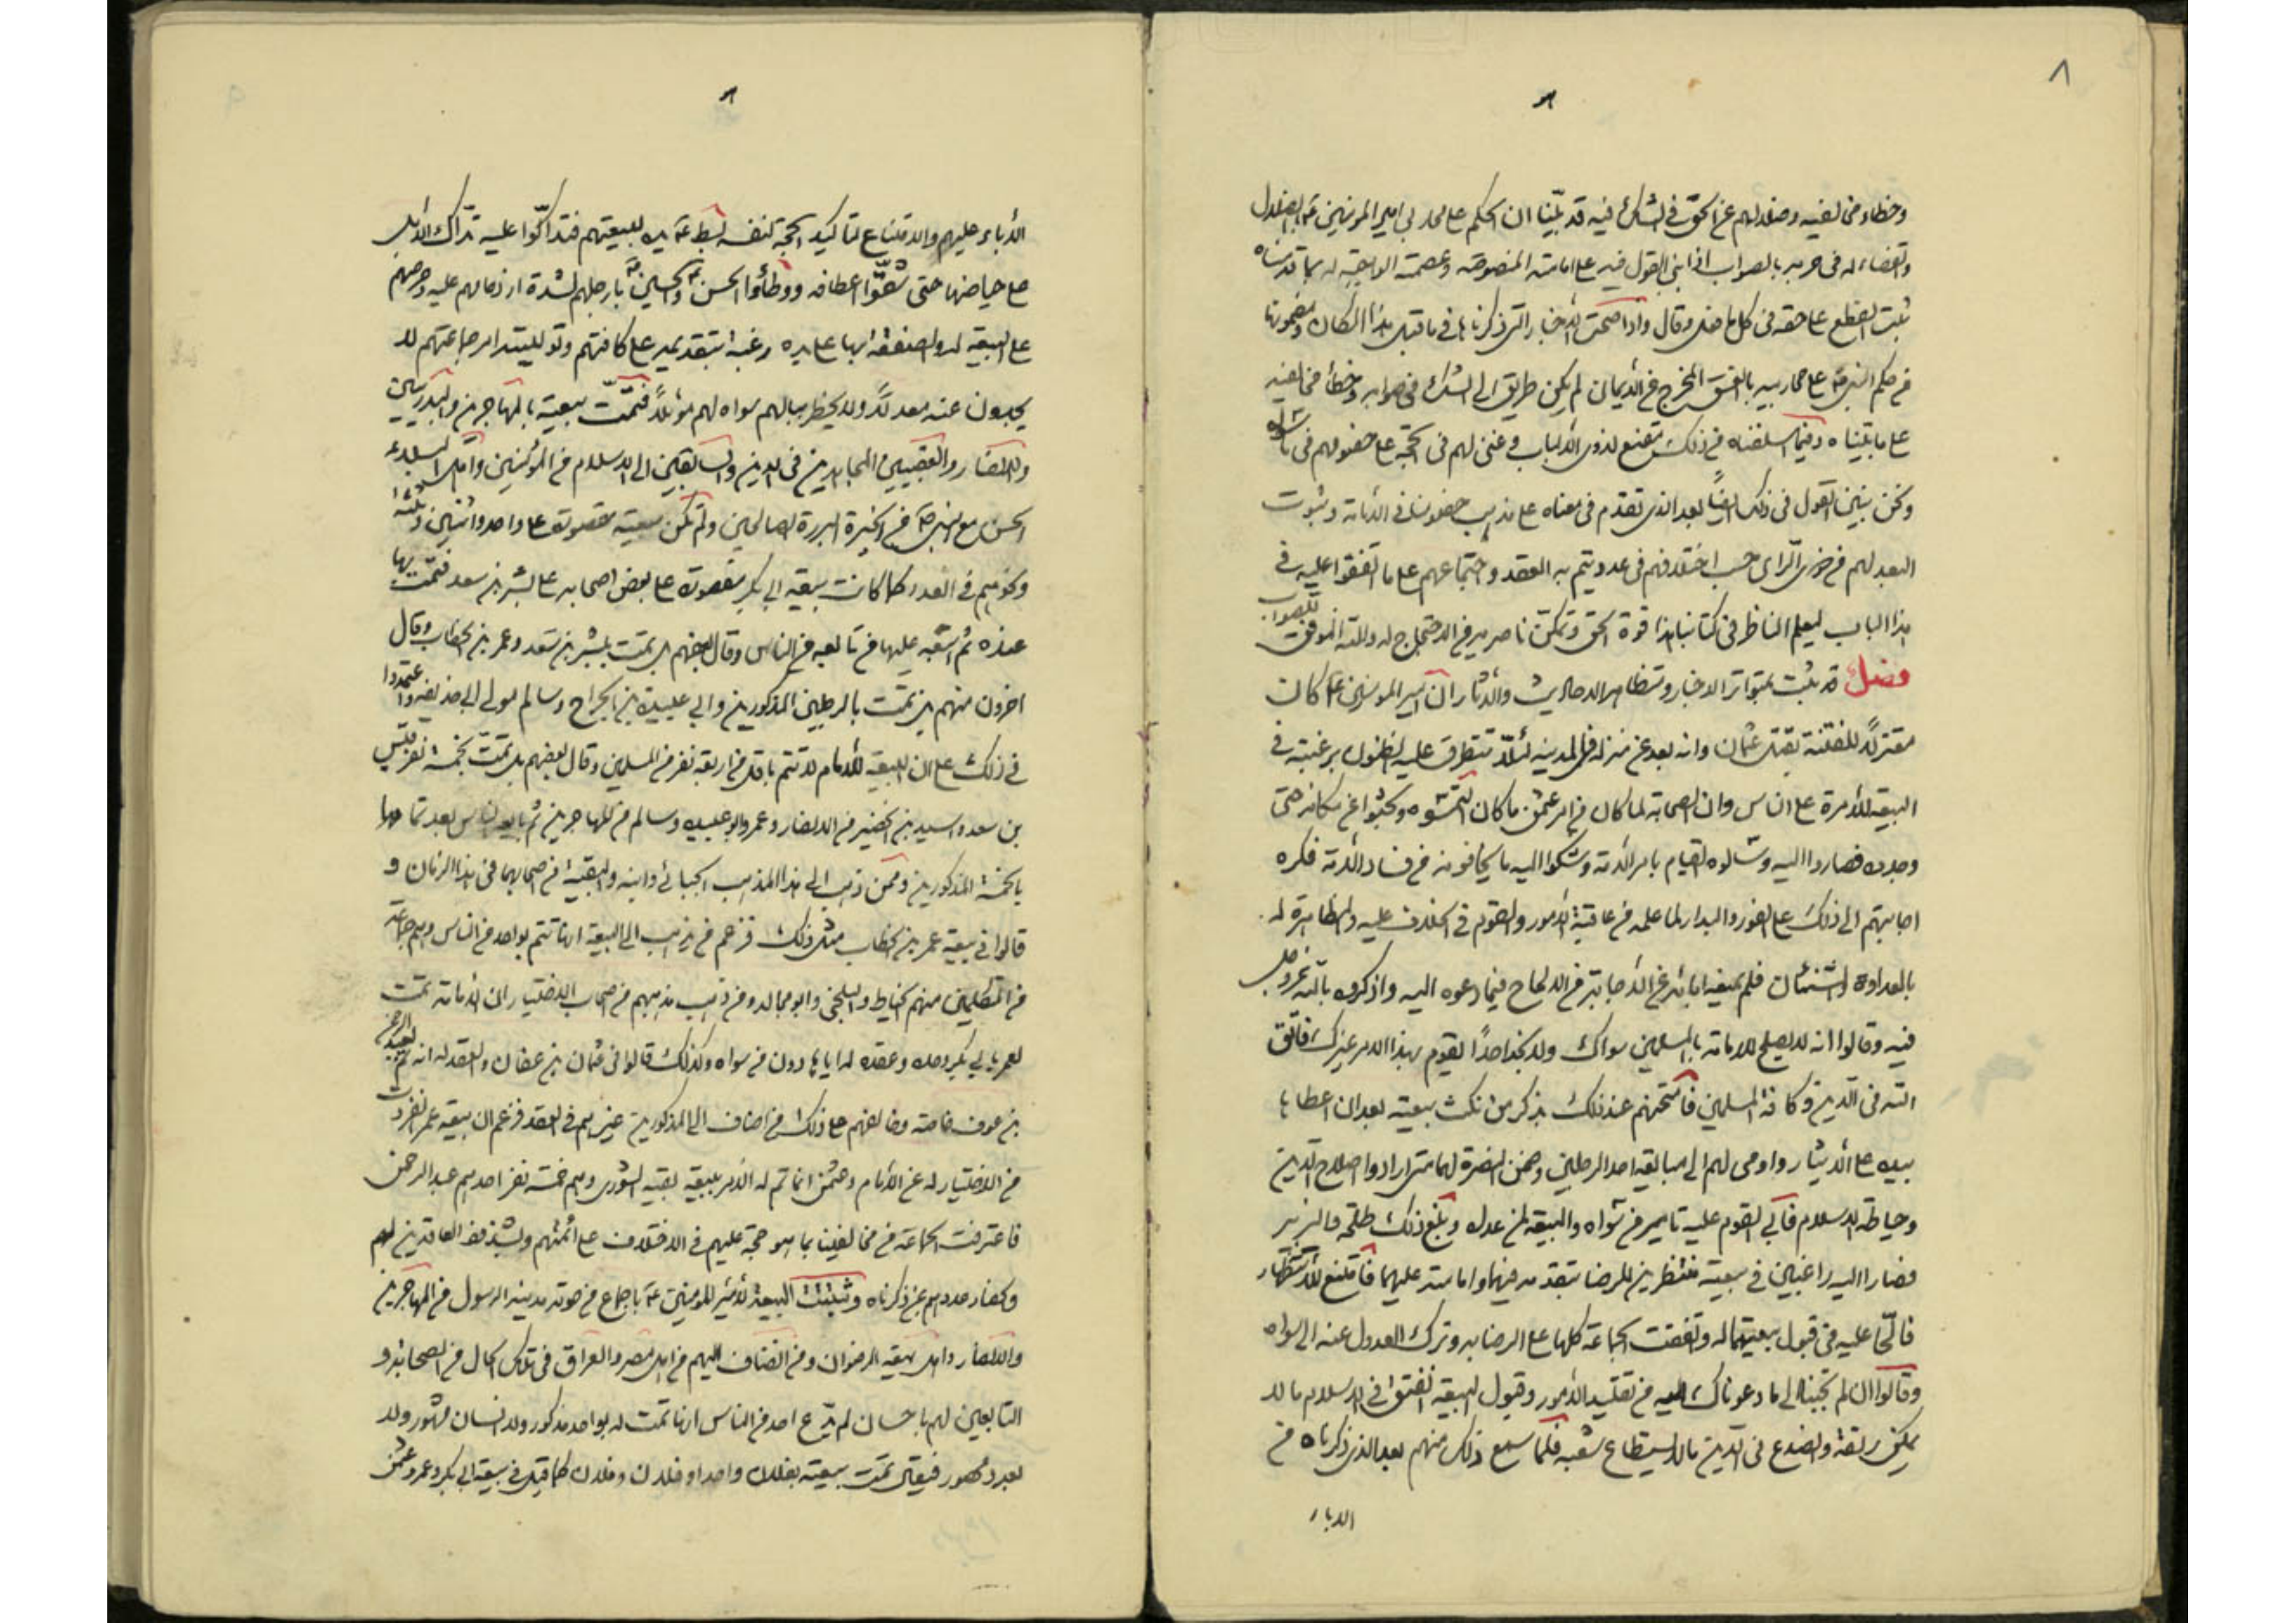 ٨
وخطاء مخالفيه وضلالهم عن الحق في الشك فيه قد بيّنا ان الحكم على محاربي امير المؤمنين ع بالضلال
والقضاء له في حربه بالصواب اذا بني القول فيه على امامته المنصوصة وعصمته الواجبة له بما قدمناه
ثبت القطع على حقه في كل ما فعل وقال واذا صحت الأخبار التي ذكرناها في ما قبل هذا المكان ومضمونها
من حكم النبي ص على محاربيه بالفسق المخرج عن الأيمان لم يكن طريق الى الشك في صوابه وخطأ مخالفيه
على ما بيّناه وفيما اسلفناه من ذلك مقنع لذوى الألباب وغنى لهم في الحجة على خصومهم في ما سواه
ونحن نبين القول في ذلك ايضًا بعد الذى تقدم في معناه على مذهب خصومنا في الأمامة وثبوت
العهد لهم من ذوى الرّاى حسب اختلافهم في عدد يتم به العقد واجتماعهم على ما اتفقوا عليه في
هذا الباب ليعلم الناظر في كتابنا هذا قوة الحق وتمكن ناصريه من الاحتجاج له والله الموفق للصواب
فصل قد ثبت بتواتر الاخبار وتظاهر الاحاديث والأثار ان امير المومنين ع كان
معتزلًا للفتنة بقتل عثمان وانه بعد عن منزله في المدينة لئلّا تتطرق عليه الظنون برغبته في
البيعة للأمرة على الناس وان الصحابة لما كان من امر عثمن ما كان التمسوه وبحثوا عن مكانه حتى
وجدوه فصاروا اليه وسئلوه القيام بامر الأمة وشكوا اليه ما يخافونه من فساد الأمة فكره
اجابتهم الى ذلك على الفور والبدار لما علمه من عاقبة الأمور والقوم في الخلاف عليه والمظاهرة له
بالعداوة والشنئان فلم يمنعهم اباؤه عن الأجابة من الالحاح فيما دعوه اليه واذكروه بالله عزوجل
فيه وقالوا انه لا يصلح للامامة بالمسلمين سواك ولا نجد احدًا يقوم بهذا الامر غيرك فاتق
الله في الدين وكافة المسلمين فامتحنهم عند ذلك بذكر من نكث بيعته بعد ان اعطاها
بيده على الأيثار واومى لهم الى مبايعة احد الرجلين وضمن النصرة لهما متى ارادوا اصلاح الدين
وحياطة الاسلام فابى القوم عليه تامير من سواه والبيعة لمن عداه وبلغ ذلك طلحة والزبير
فصارا اليه راغبين في بيعته منتظرين للرضا بتقدمه فيهما وامامته عليهما فامتنع للأستظهار
فالحّا عليه في قبول بيعتهما له واتفقت الجماعة كلها على الرضا به وترك العدول عنه الى سواه
وقالوا ان لم تجبنا الى ما دعوناك اليه من تقليد الأمور وقبول البيعة انفتق في الاسلام ما لا
يمكن رتقه وانصدع في الدين ما لا يستطاع شعبه فلما سمع ذلك منهم بعد الذى ذكرناه من
الاباء
الأباء عليهم والامتناع لتاكيد الحجة لنفسه بسط ع يده لبيعتهم فتداكّوا عليه تداك الأبل
على حياضها حتى شقّوا اعطافه ووطأوا الحسن والحسين بارجلهم لشدة ازدحامهم عليه وحرصهم
على البيعة له والصفقة بها على يده رغبة بتقديمه على كافتهم وتوليته امر جماعتهم لا
يجدون عنه معدلًا ولا يخطر ببالهم سواه لهم موئلًا فتمّت بيعته بالمهاجرين والبدريين
والانصار والعقبيين المجاهدين في الدين والسابقين الى الاسلام من المؤمنين واهل البلاء
الحسن مع النبي ص من الخيرة البررة الصالحين ولم تكن بيعته مقصورة على واحد واثنين وثلثة
ونحوهم في العدد كما كانت بيعة ابي بكر مقصورة على بعض اصحابه على بشر بن سعد فتمت بها
عنده ثم اتّبعه عليها من تابعه من الناس وقال بعضهم بل تمت ببشر بن سعد وعمر بن الخطاب وقال
اخرون منهم بل تمّت بالرجلين المذكورين وابي عبيدة بن الجراح وسالم مولى ابي حذيفة واعتمدوا
في ذلك على ان البيعة للأمام لا تتم باقل من اربعة نفر من المسلمين وقال بعضهم بل تمت بخمسة نفر قيس
بن سعد واسيد بن الحضير من الانصار وعمر وابو عبيده وسالم من المهاجرين ثم بايع الناس بعد تمامها
بالخمسة المذكورين وممن ذهب الى هذا المذهب الجبائي وابنه والبقية من اصحابهما في هذا الزمان و
قالوا في بيعة عمر بن الخطاب مثل ذلك فزعم من يذهب الى البيعة انها تتم بواحد من الناس وهم جماعة
من المتكلمين منهم الخياط والبلخي وابو مجالد ومن ذهب مذهبهم من اصحاب الاختيار ان الأمامة تمت
لعمر بابي بكر وحده وعقده له اياها دون من سواه وكذلك قالوا في عثمان بن عفان والعقد له انه تم بعبد الرحمن
بن عوف خاصة وخالفهم على ذلك من اضاف الى المذكورين غيرهم في العقد فزعم ان بيعة عمر انفردت
من الاختيار له عن الأمام وعثمن انما تم له الأمر ببيعة بقية الشورى وهم خمسة نفر احدهم عبد الرحمن
فاعترفت الجماعة من مخالفينا بما هو حجة عليهم في الاختلاف على ائمتهم وبشذوذ العاقدين لهم
وانحصار عددهم بمن ذكرناه وثبتت البيعة لأمير المومنين ع باجماع من حوته مدينة الرسول من المهاجرين
والانصار واهل بيعة الرضوان ومن انضاف اليهم من اهل مصر والعراق في تلك الحال من الصحابة و
التابعين لهم باحسان لم يدّع احد من الناس انها تمت له بواحد مذكور ولا انسان مشهور ولا
بعدد محصور فيقال تمت بيعته بفلان واحد او فلان وفلان كما قيل في بيعة ابي بكر وعمر وعثمن